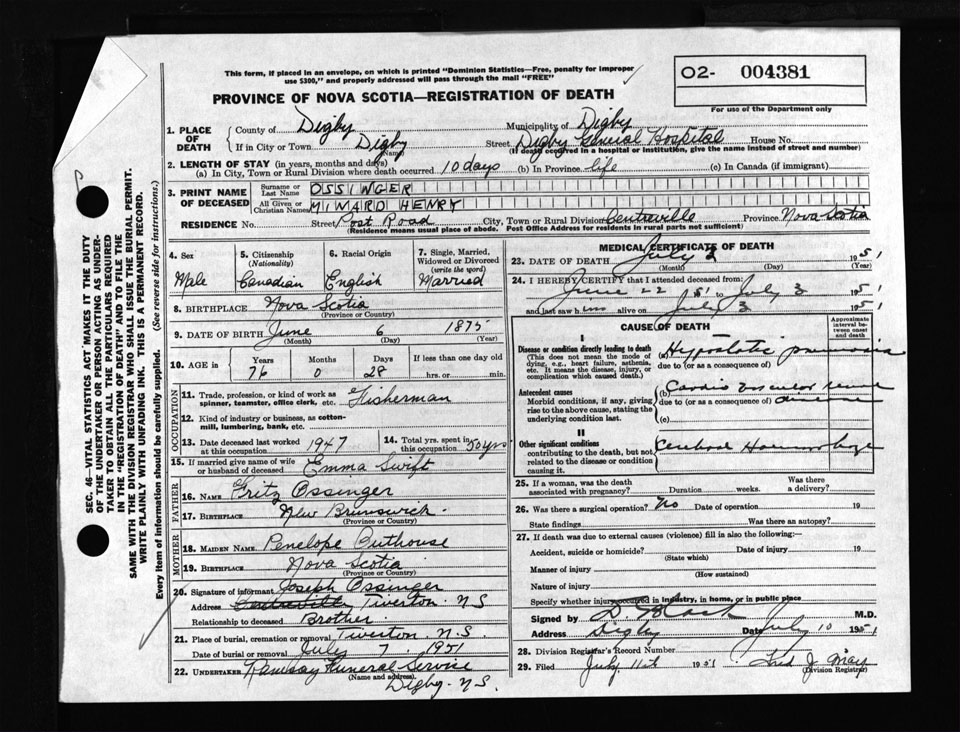 This form, if placed in an envelope, on which is printed "Dominion Statistics—Free, penalty for improper
use $300," and properly addressed will pass through the mail "FREE"
O2- 004381
For use of the Department only
PROVINCE OF NOVA SCOTIA—REGISTRATION OF DEATH
1. PLACE OF DEATH
County of Digby Municipality of Digby
If in City or Town Digby (Name) Street Digby General Hospital House No.
(If death occurred in a hospital or institution, give the name instead of street and number)
2. LENGTH OF STAY (in years, months and days)
(a) In City, Town or Rural Division where death occurred 10 days (b) In Province life (c) In Canada (if immigrant)
3. PRINT NAME OF DECEASED
Surname or Last Name OSSINGER
All Given or Christian Names MINARD HENRY
RESIDENCE No. Street Post Road City, Town or Rural Division Centreville Province Nova Scotia
(Residence means usual place of abode. Post Office Address for residents in rural parts not sufficient)
4. Sex
Male
5. Citizenship (Nationality)
Canadian
6. Racial Origin
English
7. Single, Married, Widowed or Divorced (write the word)
Married
8. BIRTHPLACE Nova Scotia
(Province or Country)
9. DATE OF BIRTH June 6 1875
(Month) (Day) (Year)
10. AGE in Years Months Days If less than one day old
76 0 28 hrs. or min.
OCCUPATION
11. Trade, profession, or kind of work as spinner, teamster, office clerk, etc. Fisherman
12. Kind of industry or business, as cotton-mill, lumbering, bank, etc.
13. Date deceased last worked at this occupation 1947
14. Total yrs. spent in this occupation 50 yrs
15. If married give name of wife or husband of deceased Emma Swift
FATHER
16. NAME Fritz Ossinger
17. BIRTHPLACE New Brunswick
(Province or Country)
MOTHER
18. MAIDEN NAME Penelope Outhouse
19. BIRTHPLACE Nova Scotia
(Province or Country)
20. Signature of informant Joseph Ossinger
Address Centreville Tiverton N.S
Relationship to deceased Brother
21. Place of burial, cremation or removal Tiverton N.S.
Date of burial or removal July 7 1951
22. UNDERTAKER Ramsay Funeral Service
(Name and address)
Digby N.S.
MEDICAL CERTIFICATE OF DEATH
23. DATE OF DEATH July 1951
(Month) (Day) (Year)
24. I HEREBY CERTIFY that I attended deceased from:
June 22 1951 to July 3 1951
and last saw him alive on July 3 1951
CAUSE OF DEATH
Approximate interval between onset and death
I
Disease or condition directly leading to death
(This does not mean the mode of dying, e.g., heart failure, asthenia, etc. It means the disease, injury, or complication which caused death.)
(a) Hypostatic pneumonia
due to (or as a consequence of)
Antecedent causes
Morbid conditions, if any, giving rise to the above cause, stating the underlying condition last.
(b) Cardio vascular renal disease
due to (or as a consequence of)
(c)
II
Other significant conditions
contributing to the death, but not related to the disease or condition causing it.
Cerebral Haemorrhage
25. If a woman, was the death associated with pregnancy? Duration weeks. Was there a delivery?
26. Was there a surgical operation? No Date of operation 19
State findings Was there an autopsy?
27. If death was due to external causes (violence) fill in also the following:—
Accident, suicide or homicide? Date of injury 19
(State which)
Manner of injury
(How sustained)
Nature of injury
Specify whether injury occurred in industry, in home, or in public place
Signed by Black M.D.
Address Digby Date July 10 1951
28. Division Registrar's Record Number
29. Filed July 11st 1951 Fred J. May
(Division Registrar)
SEC. 46—VITAL STATISTICS ACT MAKES IT THE DUTY
OF THE UNDERTAKER OR PERSON ACTING AS UNDER-
TAKER TO OBTAIN ALL THE PARTICULARS REQUIRED
IN THE "REGISTRATION OF DEATH" AND TO FILE THE
SAME WITH THE DIVISION REGISTRAR WHO SHALL ISSUE THE BURIAL PERMIT.
WRITE PLAINLY WITH UNFADING INK. THIS IS A PERMANENT RECORD.
Every item of information should be carefully supplied. (See reverse side for instructions.)